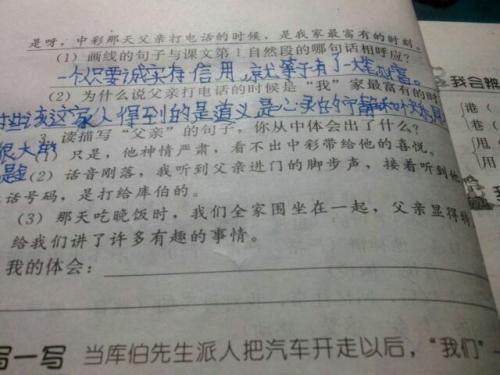 是呀,中彩那天父亲打电话的时候,是我家最富有的时刻。
(1)画线的句子与课文第1自然段的哪句话相呼应?
一个人只要诚实有信用,就等于有了一大笔财富。
(2)为什么说父亲打电话的时候是“我”家最富有的时
这家人得到的是道义是心灵的
3.读描写“父亲”的句子,你从中体会出了什么?
(1)只是,他神情严肃,看不出中彩带给他的喜悦。
(2)话音刚落,我听到父亲进门的脚步声,接着听到他
话号码,是打给库伯的。
(3)那天吃晚饭时,我们全家围坐在一起,父亲显得特
给我们讲了许多有趣的事情。
我的体会:
写一写 当库伯先生派人把汽车开走以后,“我们”
我会辨
港(
巷(
甩(
用(